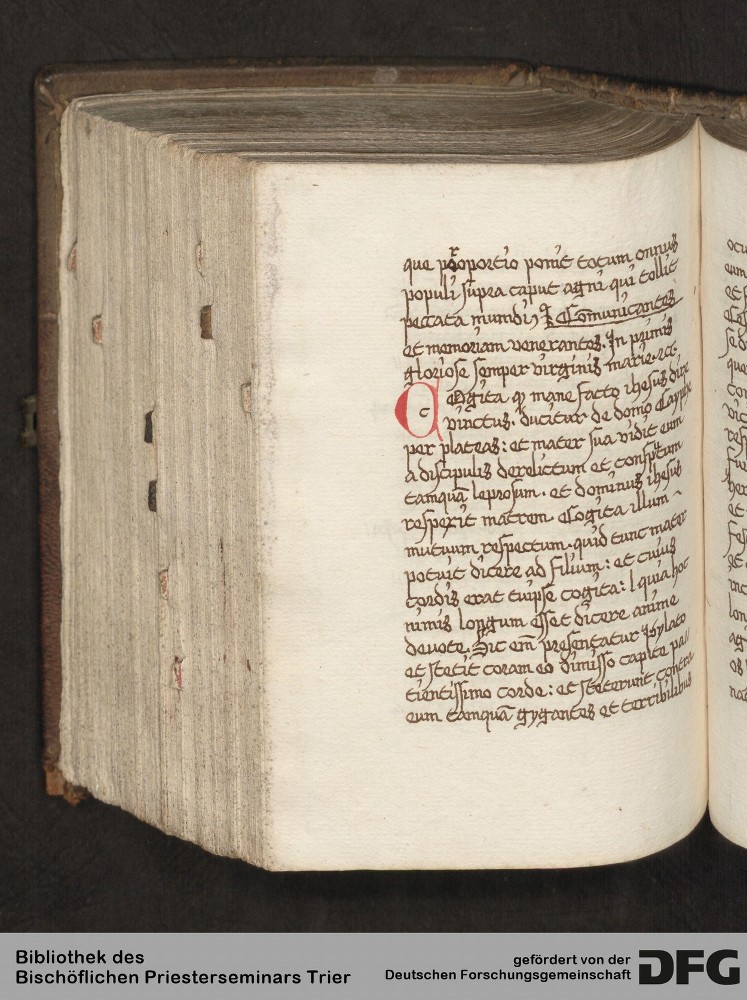 que proportio ponit totum onnus
populi supra caput agni qui tollit
peccata mundi Comunicantes
et memoriam venerantes. In primis
gloriose semper virginis marie. etc
COgita qȝ mane facto ihesus dire
vinctus. ducitur de domo Cayphe
per plateas: et mater sua vidit eum
a discipulis derelictum et consputum
tamquā leprosum. et dominus ihesus
respexit matrem. Cogita illum
mutuum respectum. quid tunc mater
potuit dicere ad filium: et cuius
cordis erat tuipse cogita: quia hoc
nimis longum esset dicere anime
devote. Sic em̄ presentatur Pylato
et stetit coram eo dimisso capite pa//
tientissimo corde: et steterunt contra
eum tamquā gygantes et terribilibus
Bibliothek des
Bischöflichen Priesterseminars Trier
gefördert von der
Deutschen Forschungsgemeinschaft
DFG